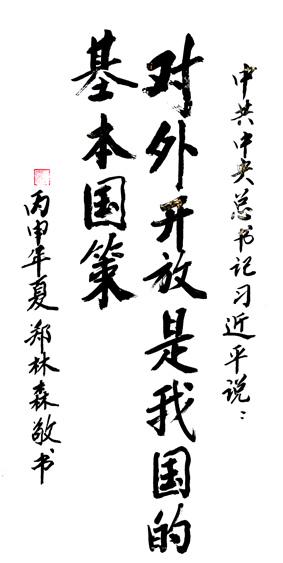 中共中央总书记习近平说：
对外开放是我国的
基本国策
丙申年夏郑林森敬书